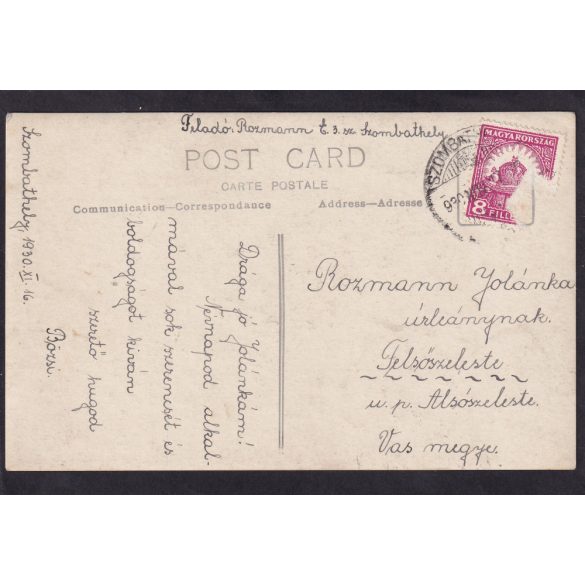 Feladó: Rozmann E. 3. sz. Szombathely
POST CARD
CARTE POSTALE
Communication—Correspondance
Address—Adresse
SZOMBAT
MAGYARORSZÁG
8 FILLÉR
Szombathely, 1930. XI. 16.
Drága jó Yolánkám!
Névnapod alkal-
mával sok szerencsét és
boldogságot kíván
szerető hugod
Bözsi.
Rozmann Yolánka
úrleánynak.
Felsőszeleste
u. p. Alsószeleste.
Vas megye.